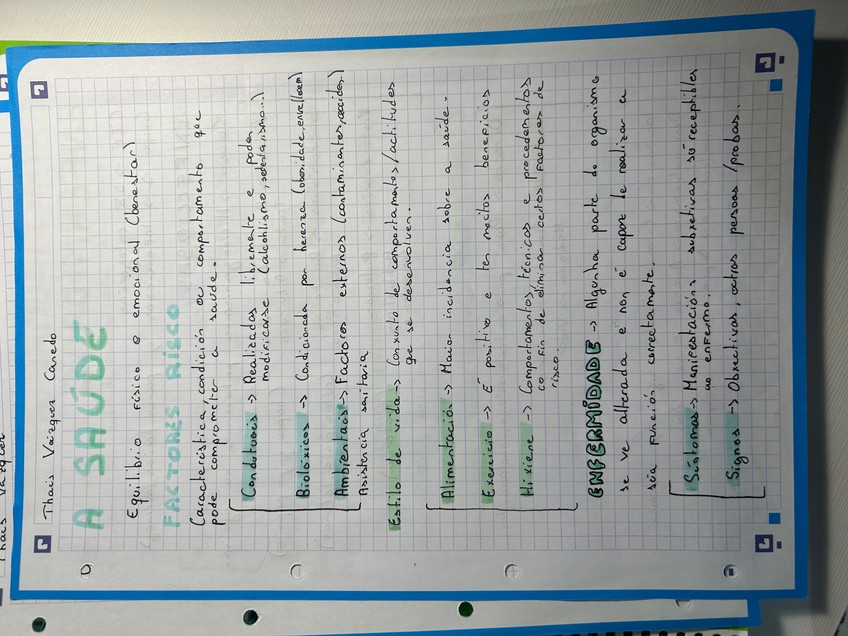 Thais Vázquez Canedo
A SAÚDE
Equilibrio físico e emocional (benestar)
FACTORES RISCO
Característica, condición ou comportamento que
pode comprometer a saúde.
Condutuais -> Realizados libremente e poden
modificarse (alcohlismo, sedentarismo...)
Biolóxicos -> Condicionada por herenza (obesidade, envellecem)
Ambientais -> Factores externos (contaminantes, acciden.)
Asistencia sanitaria
Estilo de vida -> Conxunto de comportamentos/actitudes
que se desenvolven.
Alimentación -> Maior incidencia sobre a saúde.
Exercicio -> É positivo e ten moitos beneficios
Hixiene -> Comportamentos, técnicas e procedementos
co fin de eliminar certos factores de
risco.
ENFERMIDADE -> Algunha parte do organismo
se ve alterada e non é capaz de realizar a
súa función correctamente.
Síntomas -> Manifestacións subxetivas só receptibles
ao enfermo.
Signos -> Obxectivas, outras persoas /probas.
Thais Vázquez